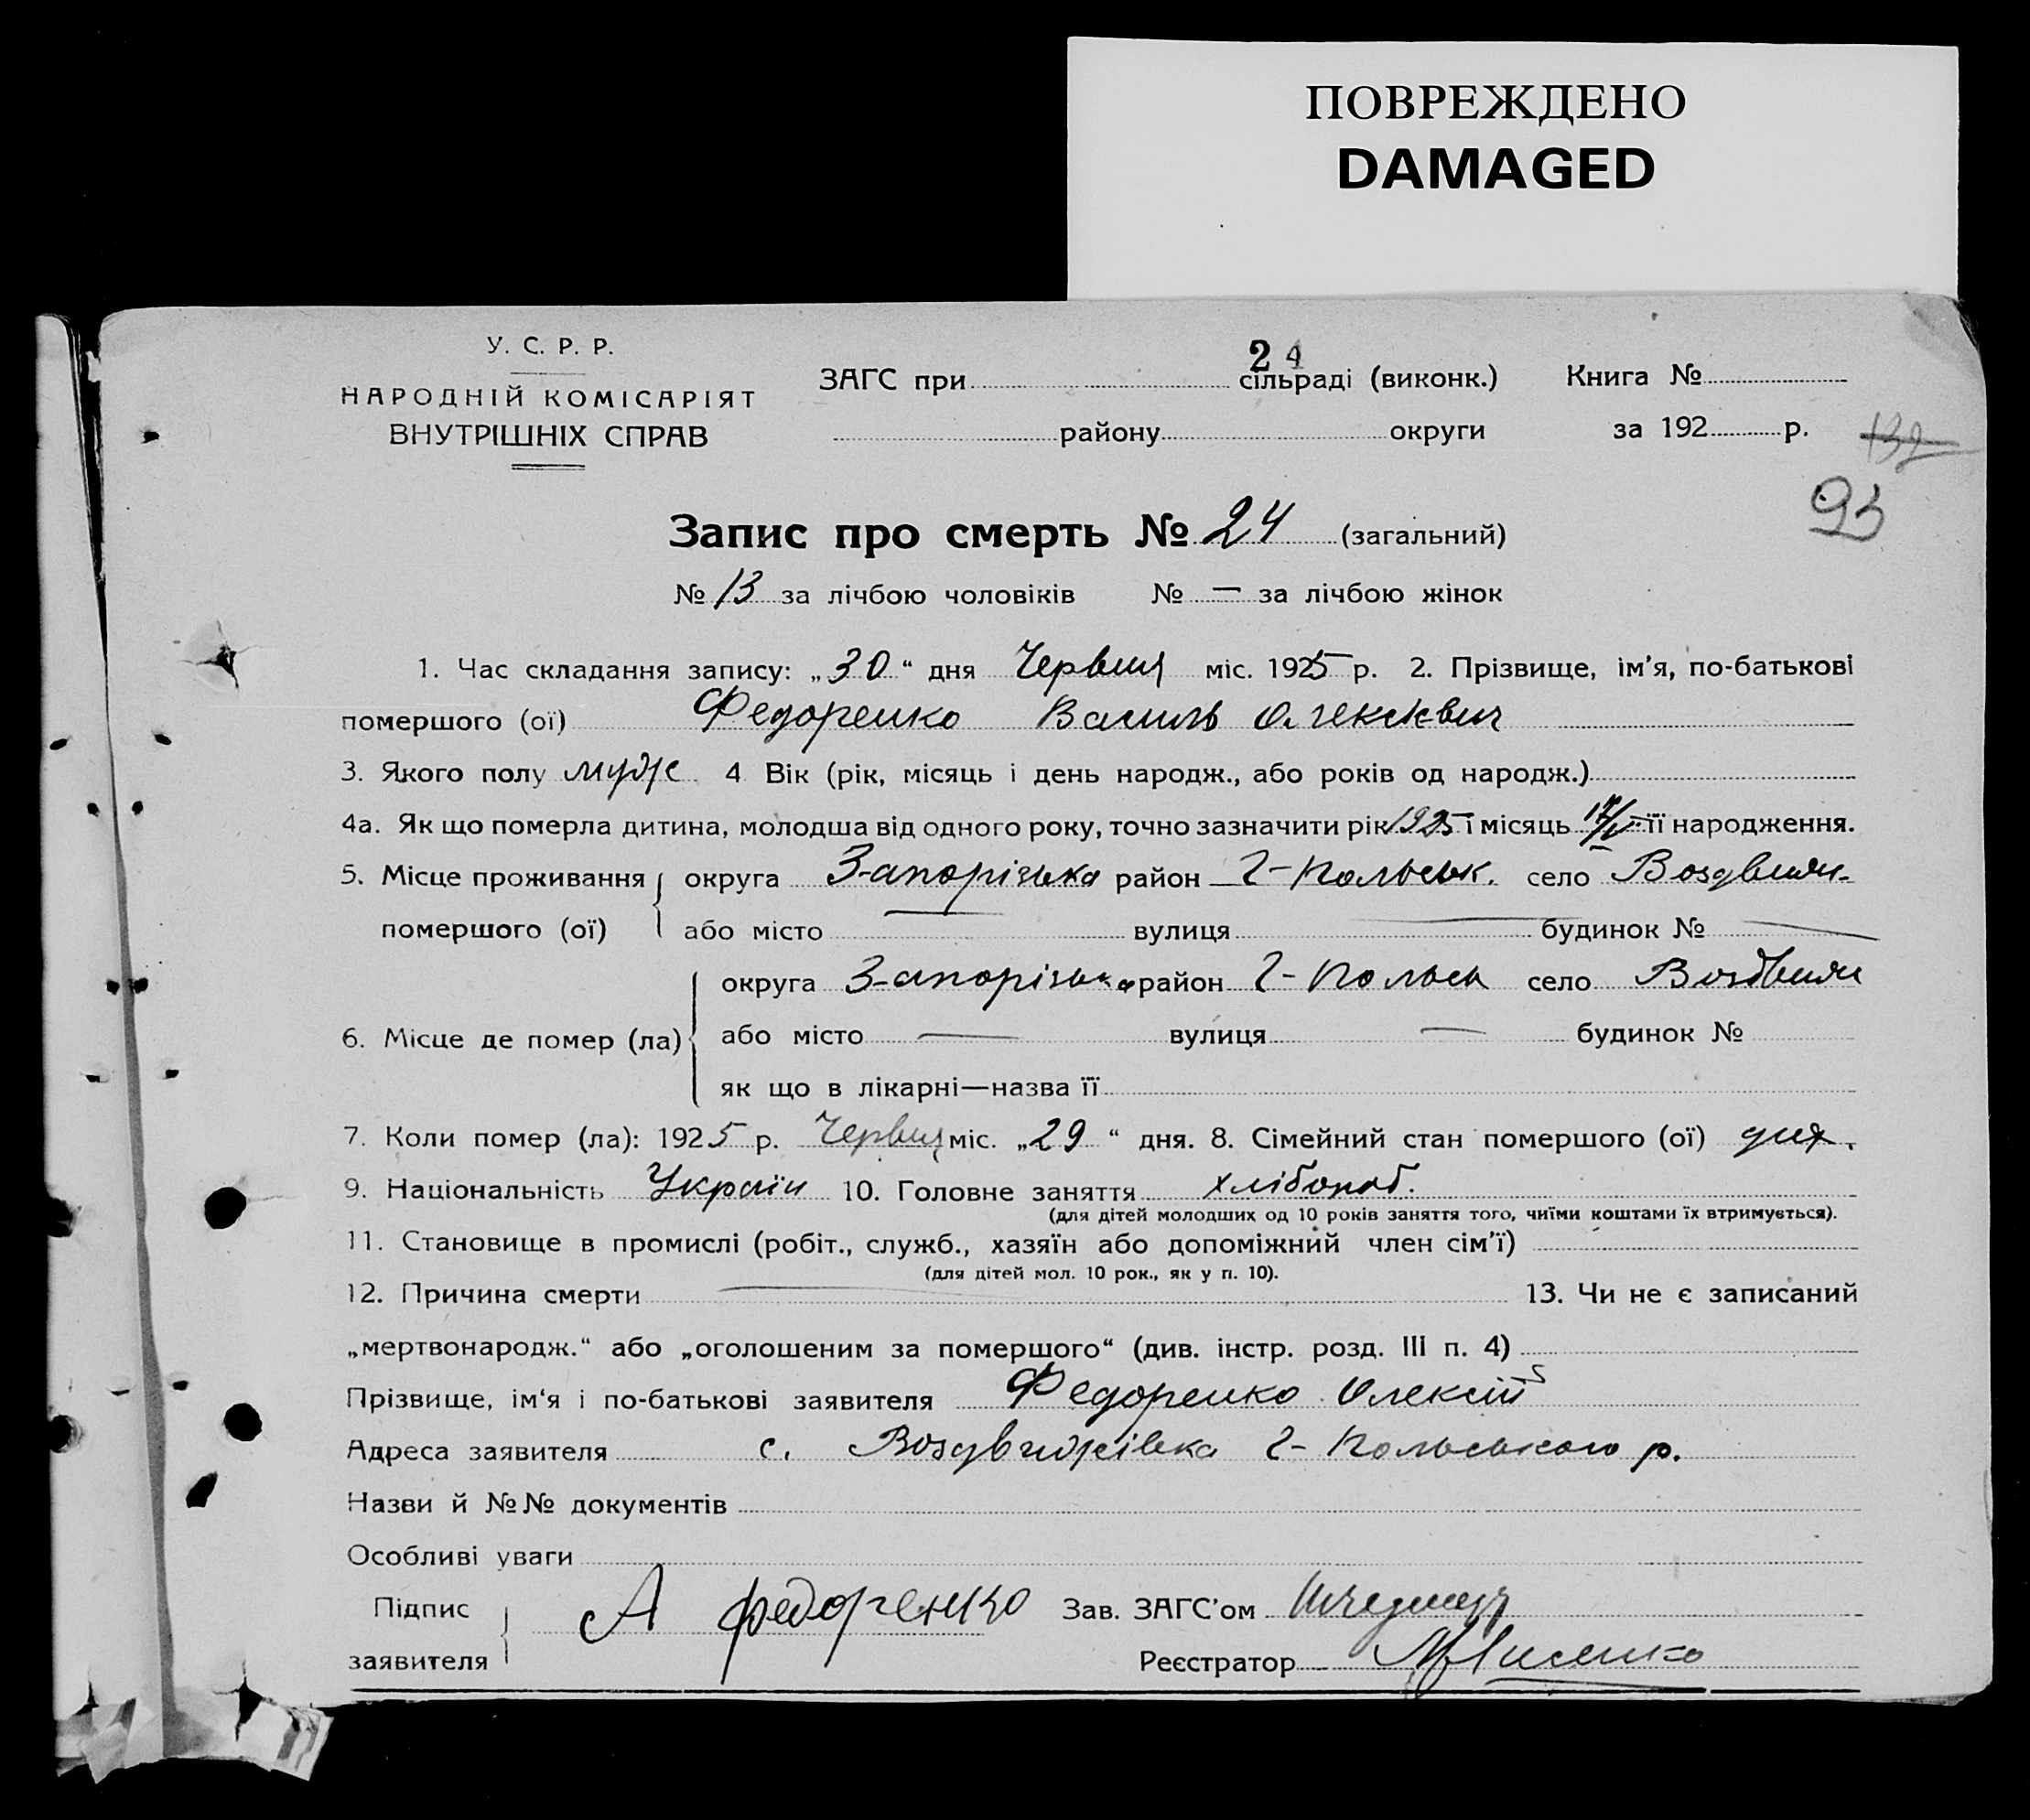 ПОВРЕЖДЕНО
DAMAGED
У. С. Р. Р.
НАРОДНІЙ КОМІСАРІЯТ
ВНУТРІШНІХ СПРАВ
24
ЗАГС при сільраді (виконк.) Книга №
району округи за 192 р.
132
93
Запис про смерть № 24 (загальний)
№ 13 за лічбою чоловіків № — за лічбою жінок
1. Час складання запису: „30“ дня Червня міс. 1925 р. 2. Прізвище, ім'я, по-батькові
помершого (ої) Федоренко Василь Олексієвич
3. Якого полу муж. 4 Вік (рік, місяць і день народж., або років од народж.)
4а. Як що померла дитина, молодша від одного року, точно зазначити рік 1925 і місяць 17/V її народження.
5. Місце проживання округа Запорізька район Г-Польськ. село Воздвиж-
помершого (ої) або місто — вулиця — будинок № —
округа Запорізька район Г-Польськ село Воздвиж
6. Місце де помер (ла) або місто — вулиця — будинок №
як що в лікарні—назва її
7. Коли помер (ла): 1925 р. Червня міс. „29“ дня. 8. Сімейний стан помершого (ої) дит.
9. Національність Україн 10. Головне заняття хлібороб.
(для дітей молодших од 10 років заняття того, чиїми коштами їх втримується).
11. Становище в промислі (робіт., служб., хазяїн або допоміжний член сім'ї)
(для дітей мол. 10 рок., як у п. 10).
12. Причина смерти — 13. Чи не є записаний
„мертвонародж.“ або „оголошеним за помершого“ (див. інстр. розд. III п. 4)
Прізвище, ім'я і по-батькові заявителя Федоренко Олексій
Адреса заявителя с. Воздвижівка Г-Польського р.
Назви й №№ документів
Особливі уваги
Підпис А Федоренко Зав. ЗАГС'ом
заявителя Реєстратор